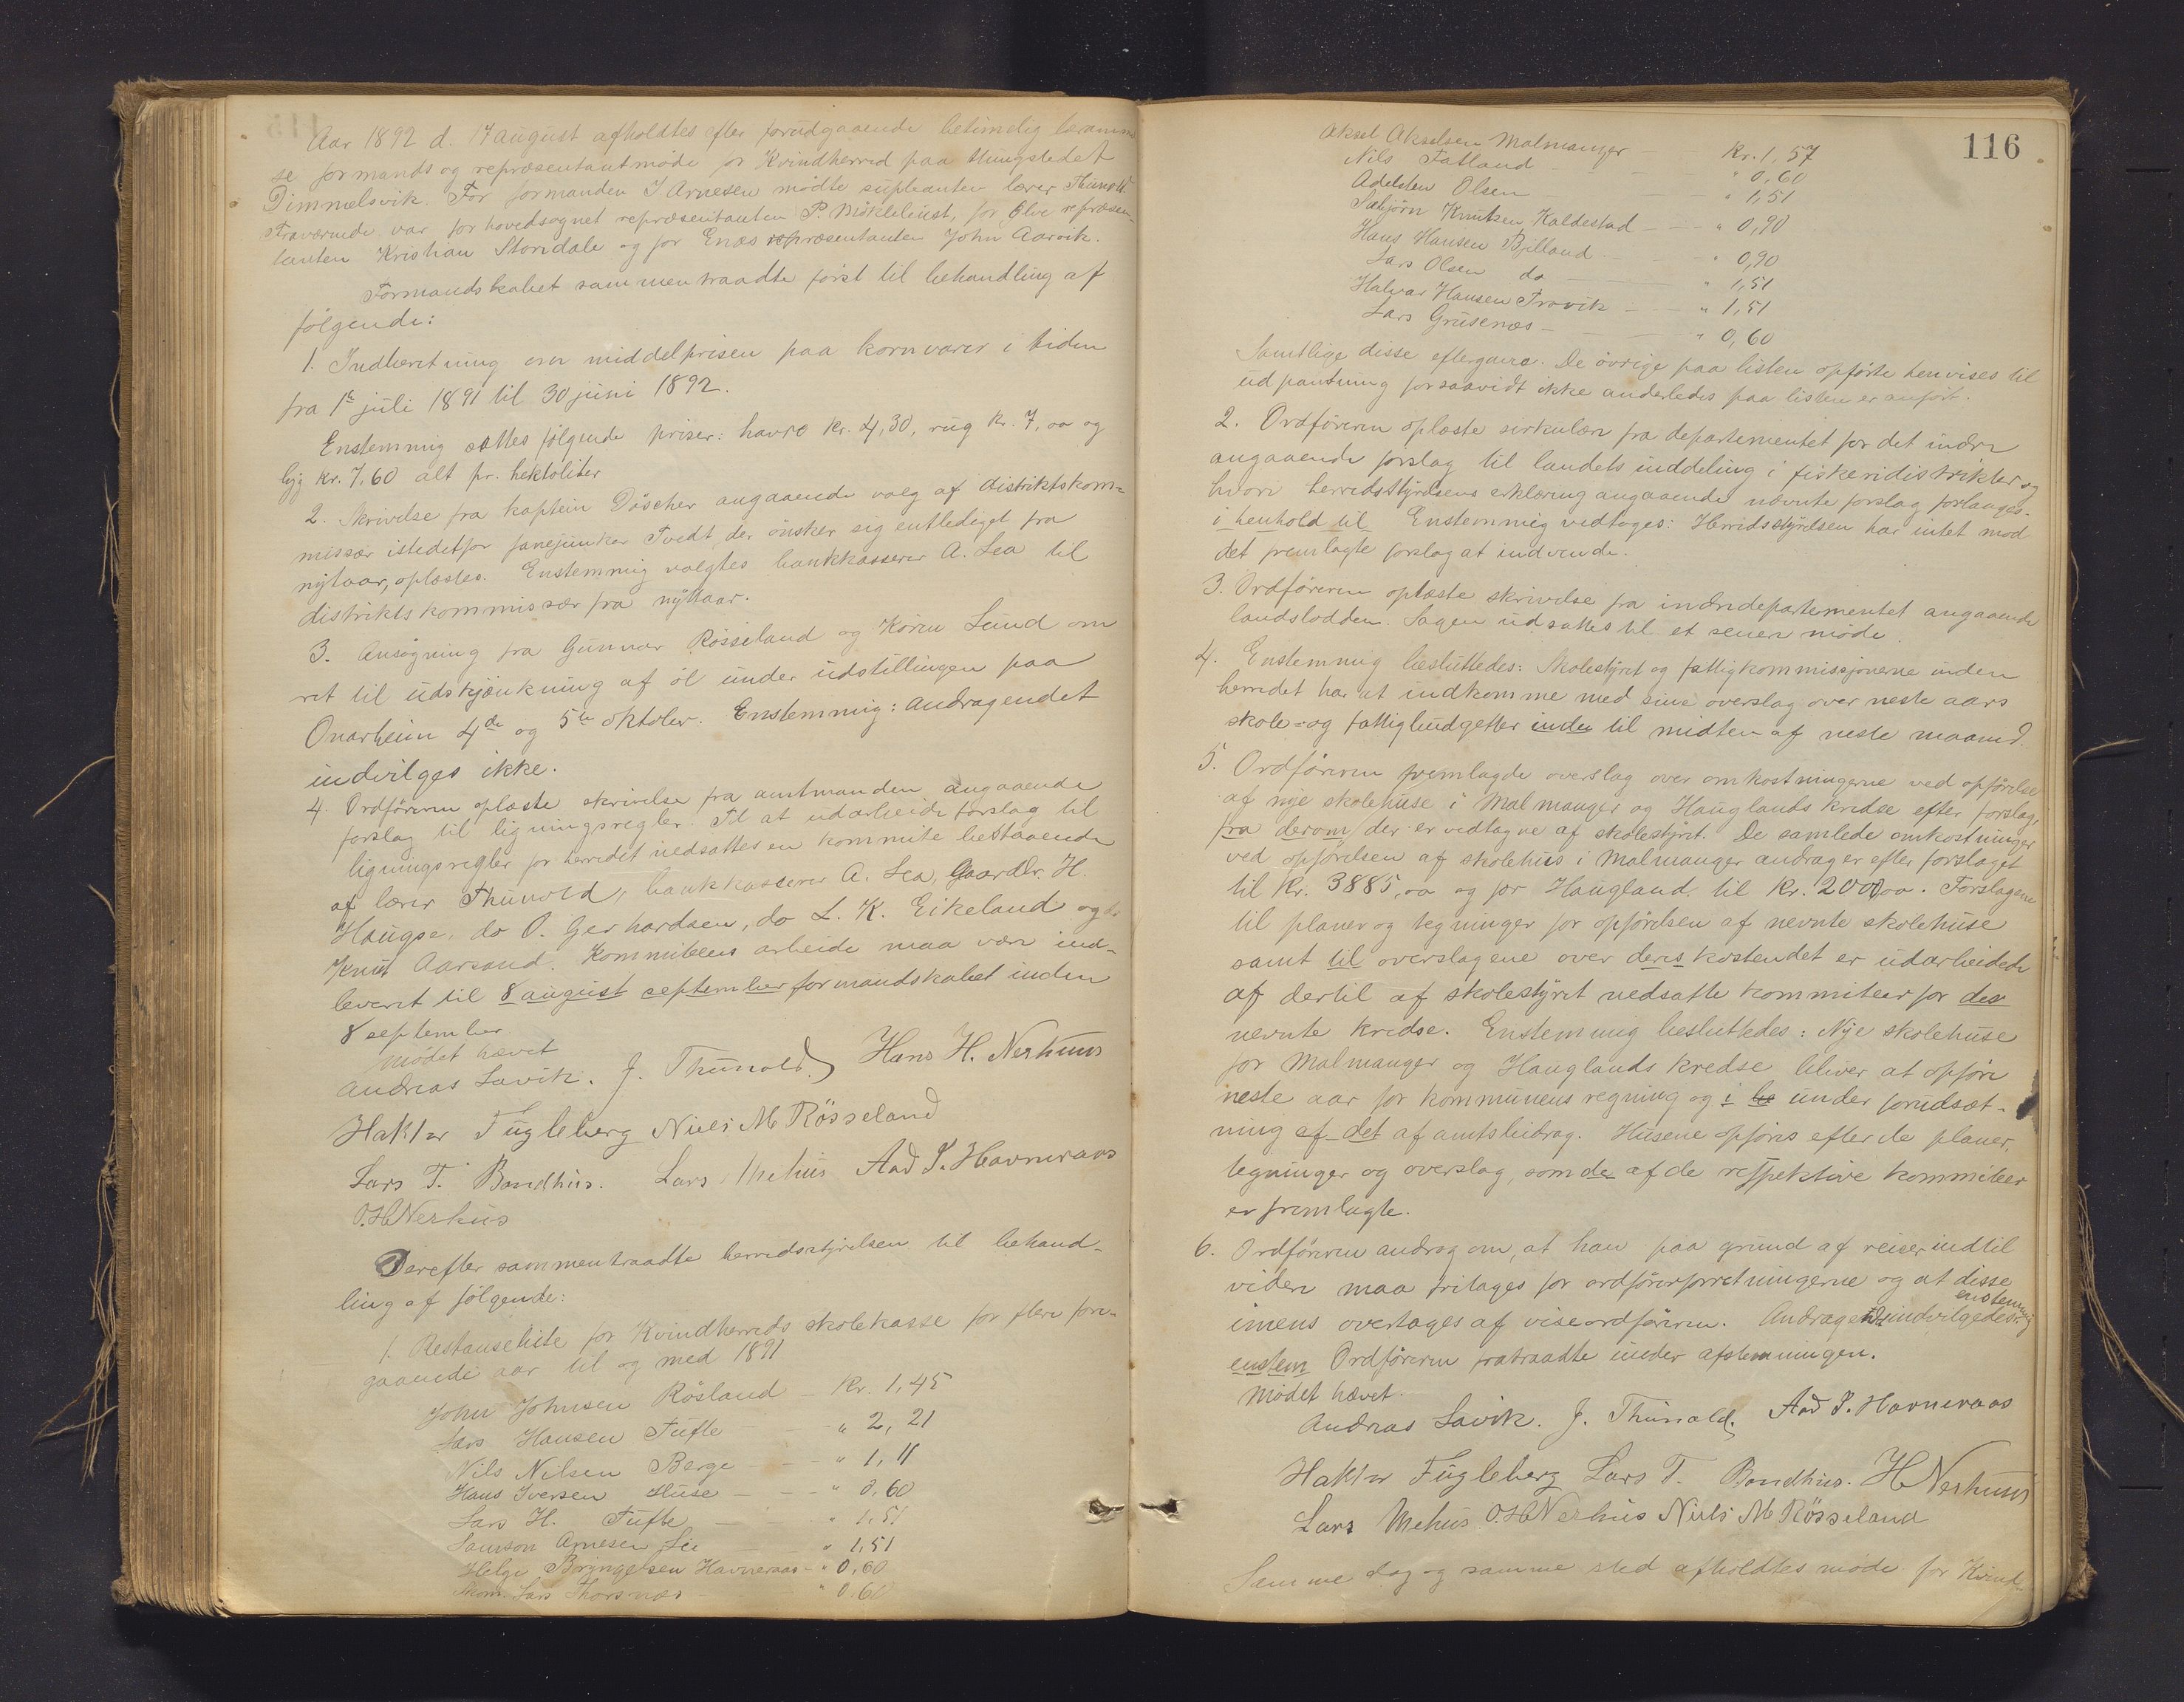 Aar 1892 d. 17 august afholdtes efter forudgaaende betimelig beramm
se formands og repræsentantmøde for Kvindherred paa thingstedet
Dimmelsvik. For formanden J Arnesen mødte supleanten lærer Thunold
Fraværende var for hovedsognet repræsentanten P. Møklebust, for Ølve repræsen-
tanten Kristian Storidale og for Enæs repræsentanten John Aarvik.
Formandskabet sammentraadte først til behandling af
følgende:
1. Indberetning om middelprisen paa kornvarer i tiden
fra 1te juli 1891 til 30 juni 1892.
Enstemmig sattes følgende priser: havre kr. 4,30, rug kr. 7,00 og
byg kr. 7,60 alt pr. hektoliter
2. Skrivelse fra kaptein Døscher angaaende valg af distriktskom-
missær istedetfor fanejunker Tvedt, der ønsker sig entlediget fra
nytaar, oplæstes. Enstemmig valgtes bankkasserer A. Lea til
distriktskommissær fra nyttaar.
3. Ansøgning fra Gunnar Røsseland og Koren Lund om
ret til udskjænkning af øl under udstillingen paa
Onarheim 4de og 5te oktober. Enstemmig: andragendet
indvilges ikke.
4. Ordføreren oplæste skrivelse fra amtmanden angaaende
forslag til ligningsregler. Til at udarbeide forslag til
ligningsregler for herredet nedsattes en kommite bestaaende
af lærer Thunold, bankkasserer A. Lea, Gaardbr. H.
Haugse, do O. Gerhardsen, do L. K. Eikeland og do
Knut Aarsand. Kommiteens arbeide maa være ind-
leveret til 8 august september formandskabet inden
8 september.
Mødet hævet
Andreas Lavik. J. Thunold. Hans H. Nerhuus
Haktor Fugleberg Niels M Røsseland
Lars T. Bondhus. Lars Mehus Aad J. Havneraas
O.H Nerhus
Derefter sammentraadte herredsstyrelsen til behand-
ling af følgende:
1. Restanseliste for Kvindherreds skolekasse for flere fore-
gaaende aar til og med 1891
John Johnsen Røsland - Kr. 1,45
Lars Hansen Tufte - " 2,21
Nils Nilsen Berge - - " 1,11
Hans Iversen Huse - - - " 0,60
Lars H. Tufte - - " 1,51
Samson Arnesen Lie " 1,51
Helge Brynjelsen Havneraas - " 0,60
Thom. Lars Thorsnæs - " 0,60
116
Aksel Akselsen Malmanger - - Kr. 1,57
Nils Fatland - - - - " 0,60
Adelsten Olsen - " 1,51
Sæbjørn Knutsen Kaldestad - - - " 0,90
Hans Hansen Bjelland - - " 0,90
Lars Olsen do - " 1,51
Halvar Hansen Travik - - " 1,51
Lars Grusenæs - - " 0,60
Samtlige disse eftergaves. De øvrige paa listen opførte henvises til
udpantning forsaavidt ikke anderledes paa listen er anført.
2. Ordføreren oplæste sirkulære fra departementet for det indre
angaaende forslag til landets inddeling i fiskeridistrikter og
hvori herredsstyrelsens erklæring angaaende nævnte forslag forlanges.
i henhold til Enstemmig vedtoges: Herredsstyrelsen har intet mod
det fremlagte forslag at indvende.
3. Ordføreren oplæste skrivelse fra indredepartementet angaaende
landslodden. Sagen udsattes til et senere møde.
4. Enstemmig besluttedes: Skolestyret og fattigkommissjonerne inden
herredet har at indkomme med sine overslag over neste aars
skole- og fattigbudgetter inden til midten af neste maaned.
5. Ordføreren fremlagde overslag over omkostningerne ved opførelse
af nye skolehuse i Malmanger og Hauglands kredse efter forslag,
fra derom der er vedtagne af skolestyret. De samlede omkostninger
ved opførelsen af skolehus i Malmanger andrager efter forslaget
til Kr. 3885,00 og for Haugland til Kr. 2000,00. Forslagene
til planer og tegninger for opførelsen af nevnte skolehuse
samt til overslagene over deres kostendet er udarbeidede
af dertil af skolestyret nedsatte kommiteer for des
nevnte kredse. Enstemmig besluttedes: Nye skolehuse
for Malmanger og Hauglands kredse bliver at opføre
neste aar for kommunens regning og i be under forudsæt-
ning af det af amtsbidrag. Husene opføres efter de planer,
tegninger og overslag, som de af de respektive kommiteer
er fremlagte.
6. Ordføreren androg om, at han paa grund af reiser indtil
videre maa fritages for ordførerforretningerne og at disse
imens overtages af viseordføreren. Andragendet indvilgedes enstemmig
enstem Ordføreren fratraadte under afstemningen.
Mødet hævet.
Andreas Lavik. J. Thunold. Aad J. Havneraas
Haktor Fugleberg Lars T. Bondhus. H Nerhuus
Lars Mehus O.H Nerhus Niels M Røsseland
Samme dag og samme sted afholdtes møde for Kvind-